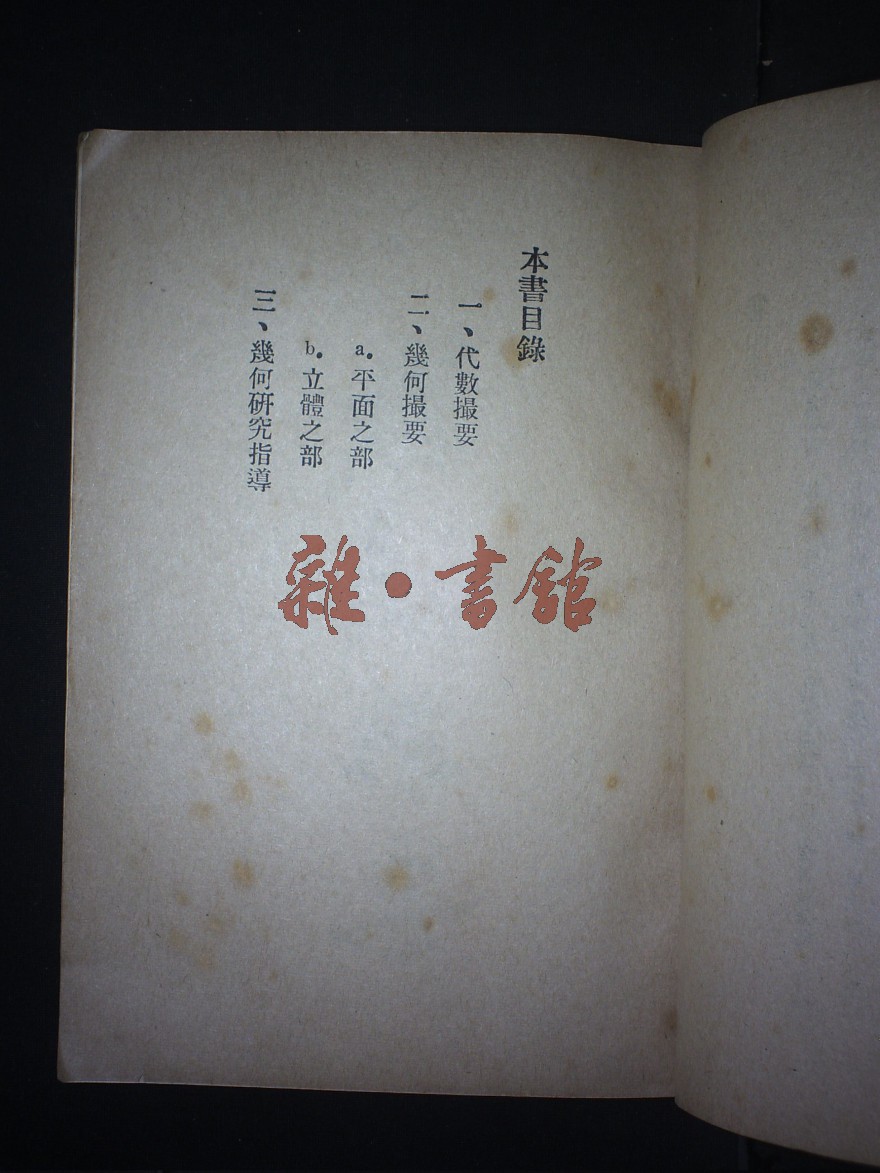 本書目錄
一、代數撮要
二、幾何撮要
a.平面之部
b.立體之部
三、幾何研究指導
雜·書館